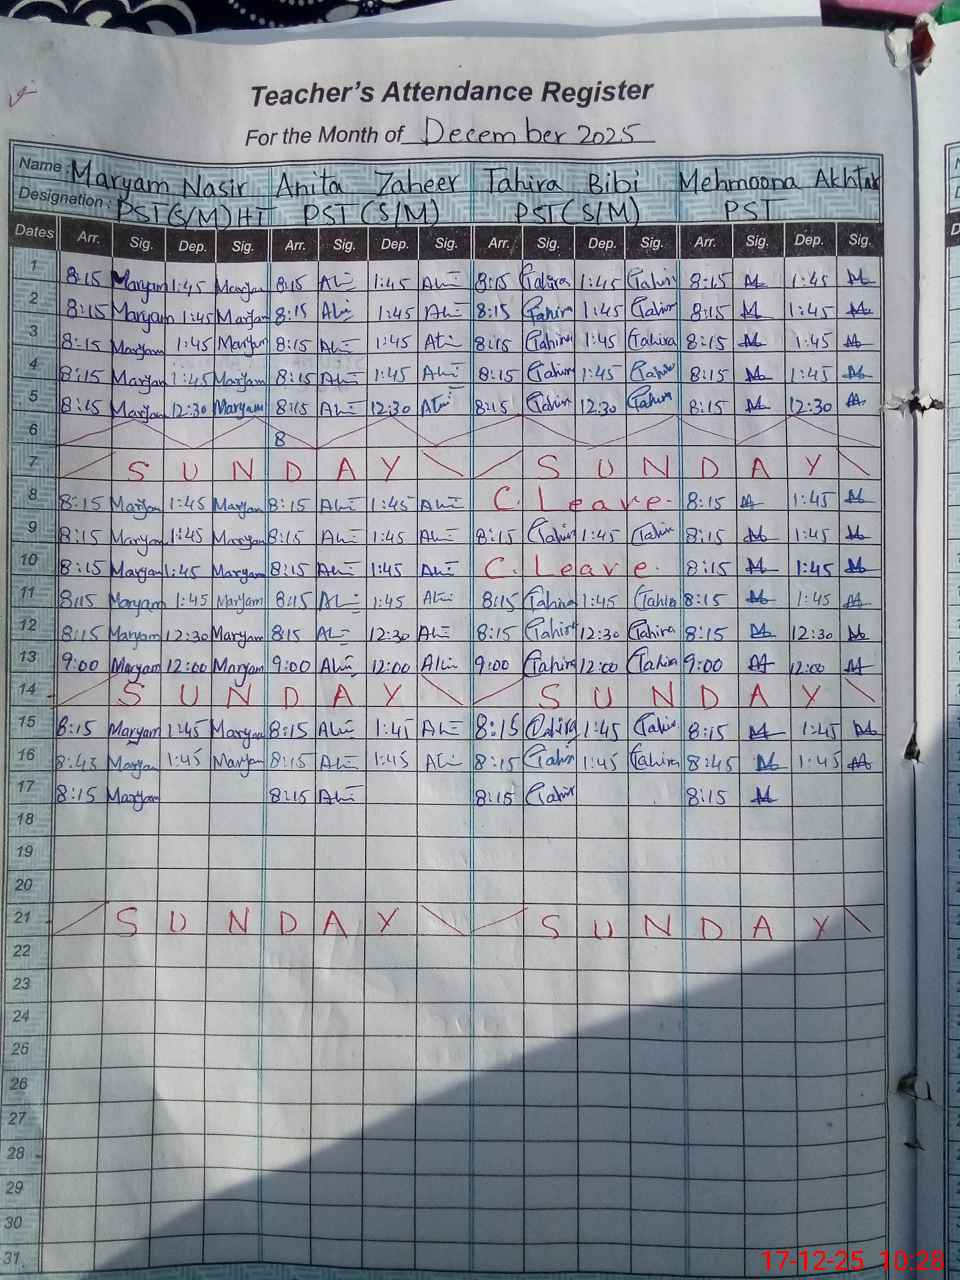 Teacher's Attendance Register
For the Month of December 2025
Name : Maryam Nasir Anita Zaheer Tahira Bibi Mehmoona Akhtar
Designation : PST(S/M)HT PST(S/M) PST(S/M) PST
Dates Arr. Sig. Dep. Sig. Arr. Sig. Dep. Sig. Arr. Sig. Dep. Sig. Arr. Sig. Dep. Sig.
1 8:15 Maryam 1:45 Maryam 8:15 1:45 8:15 Tahira 1:45 Tahira 8:15 1:45
2 8:15 Maryam 1:45 Maryam 8:15 1:45 8:15 Tahira 1:45 Tahira 8:15 1:45
3 8:15 Maryam 1:45 Maryam 8:15 1:45 8:15 Tahira 1:45 Tahira 8:15 1:45
4 8:15 Maryam 1:45 Maryam 8:15 1:45 8:15 Tahira 1:45 Tahira 8:15 1:45
5 8:15 Maryam 12:30 Maryam 8:15 12:30 8:15 Tahira 12:30 Tahira 8:15 12:30
6 8
7 S U N D A Y S U N D A Y
8 8:15 Maryam 1:45 Maryam 8:15 1:45 C. Leave. 8:15 1:45
9 8:15 Maryam 1:45 Maryam 8:15 1:45 8:15 Tahira 1:45 Tahira 8:15 1:45
10 8:15 Maryam 1:45 Maryam 8:15 1:45 C. Leave. 8:15 1:45
11 8:15 Maryam 1:45 Maryam 8:15 1:45 8:15 Tahira 1:45 Tahira 8:15 1:45
12 8:15 Maryam 12:30 Maryam 8:15 12:30 8:15 Tahira 12:30 Tahira 8:15 12:30
13 9:00 Maryam 12:00 Maryam 9:00 12:00 9:00 Tahira 12:00 Tahira 9:00 12:00
14 S U N D A Y S U N D A Y
15 8:15 Maryam 1:45 Maryam 8:15 1:45 8:15 Tahira 1:45 Tahira 8:15 1:45
16 8:45 Maryam 1:45 Maryam 8:15 1:45 8:15 Tahira 1:45 Tahira 8:45 1:45
17 8:15 Maryam 8:15 8:15 Tahira 8:15
18
19
20
21 S U N D A Y S U N D A Y
22
23
24
25
26
27
28
29
30
31
17-12-25 10:28